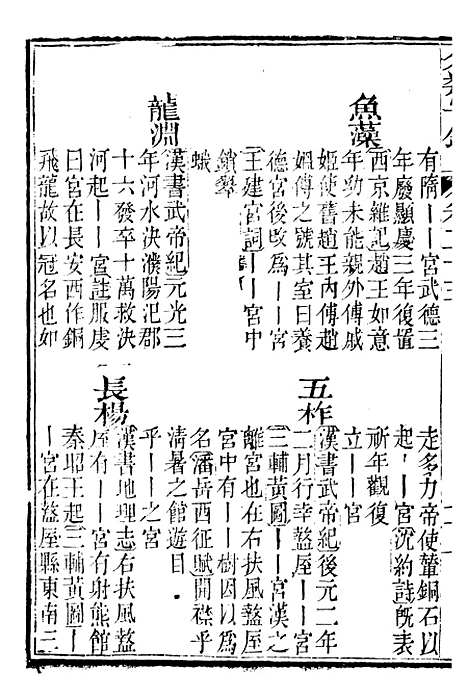 有隋｜｜宮武德三
年廢顯慶三年復置
魚藻
西京雜記趙王如意
年幼未能親外傅戚
姬使舊趙王內傅趙
媼傅之號其室曰養
德宮後改為｜｜宮
王建宮詞｜｜宮中
鎖翠
蛾
龍淵
漢書武帝紀元光三
年河水決濮陽汜郡
十六發卒十萬救決
河起｜｜宮註服虔
曰宮在長安西作銅
飛龍故以冠名也如
走多力帝使鏨銅石以
起｜｜宮沉約詩旣表
祈年觀復
立｜｜宮
五柞
漢書武帝紀後元二年
二月行幸盩厔｜｜宮
三輔黃圖｜｜宮漢之
離宮也在右扶風盩厔
宮中有｜｜樹因以為
名潘岳西征賦開襟乎
清暑之館遊目
乎｜｜之宮
長楊
漢書地理志右扶風盩
厔有｜｜宮有射熊館
秦昭王起三輔黃圖｜
｜宮在盩厔縣東南三